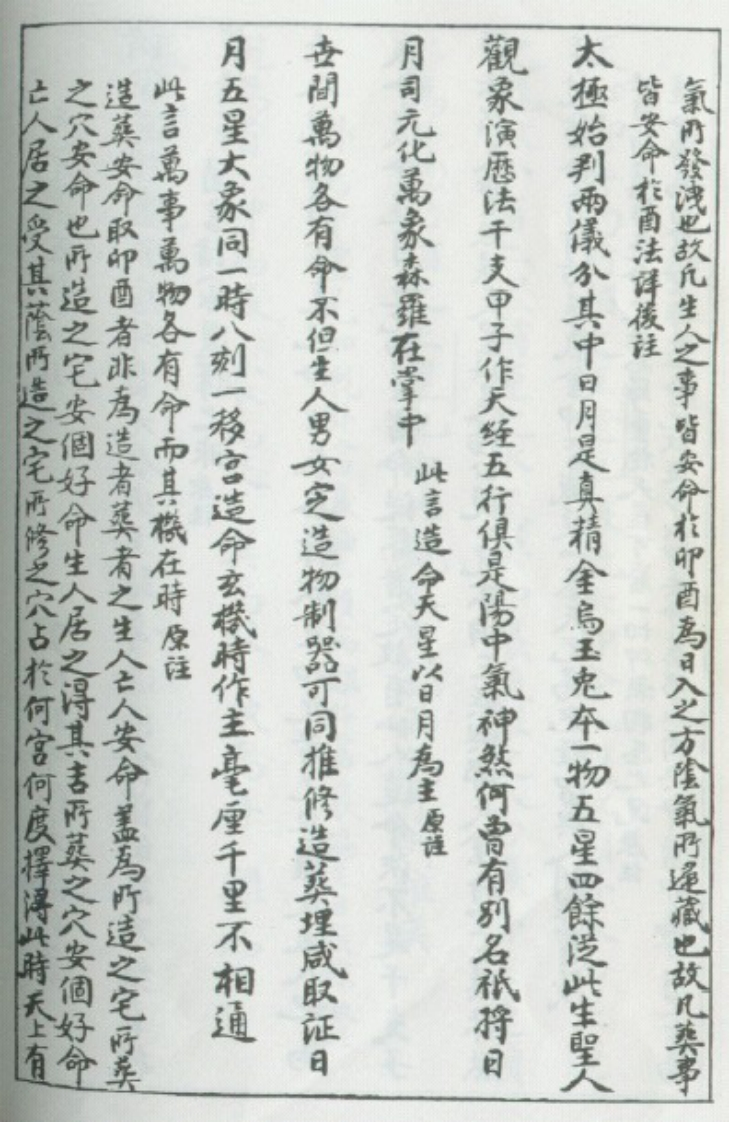 氣所發洩也故凡生人之事皆安命於卯酉為日入之方陰氣所還藏也故凡葬事
皆安命於酉法詳後註
太極始判兩儀分其中日月是真精金烏玉兔本一物五星四餘從此生聖人
觀象演曆法干支甲子作天經五行俱是陽中氣神煞何曾有別名祇將日
月司元化萬象森羅在掌中 此言造命天星以日月為主 原註
世間萬物各有命不但生人男女定造物制器可同推修造葬埋咸取証日
月五星大象同一時八刻一移宮造命玄機時作主毫厘千里不相通
此言萬事萬物各有命而其機在時 原註
造葬安命取卯酉者非為造者葬者之生人亡人安命蓋為所造之宅所葬
之穴安命也所造之宅安個好命生人居之得其吉所葬之穴安個好命
亡人居之受其蔭所造之宅所修之穴占於何宮何度擇得此時天上有